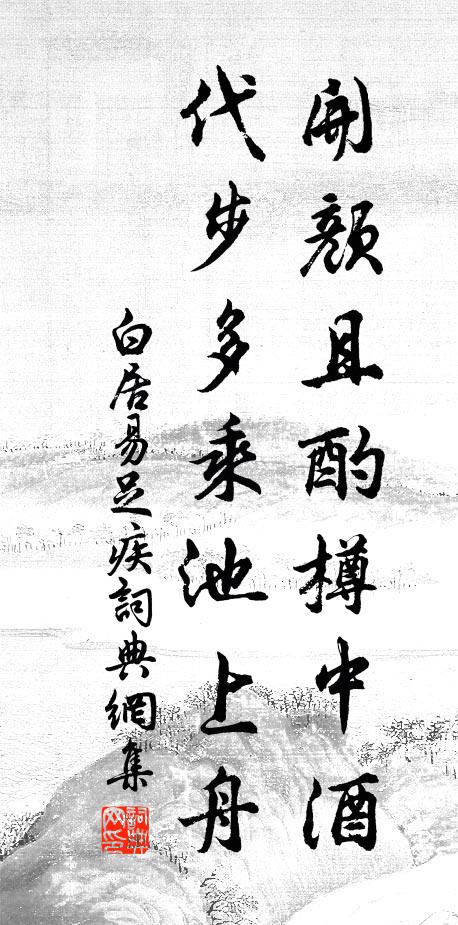 開顏且酌樽中酒
代步多乘池上舟
白居易足疾詞典網集